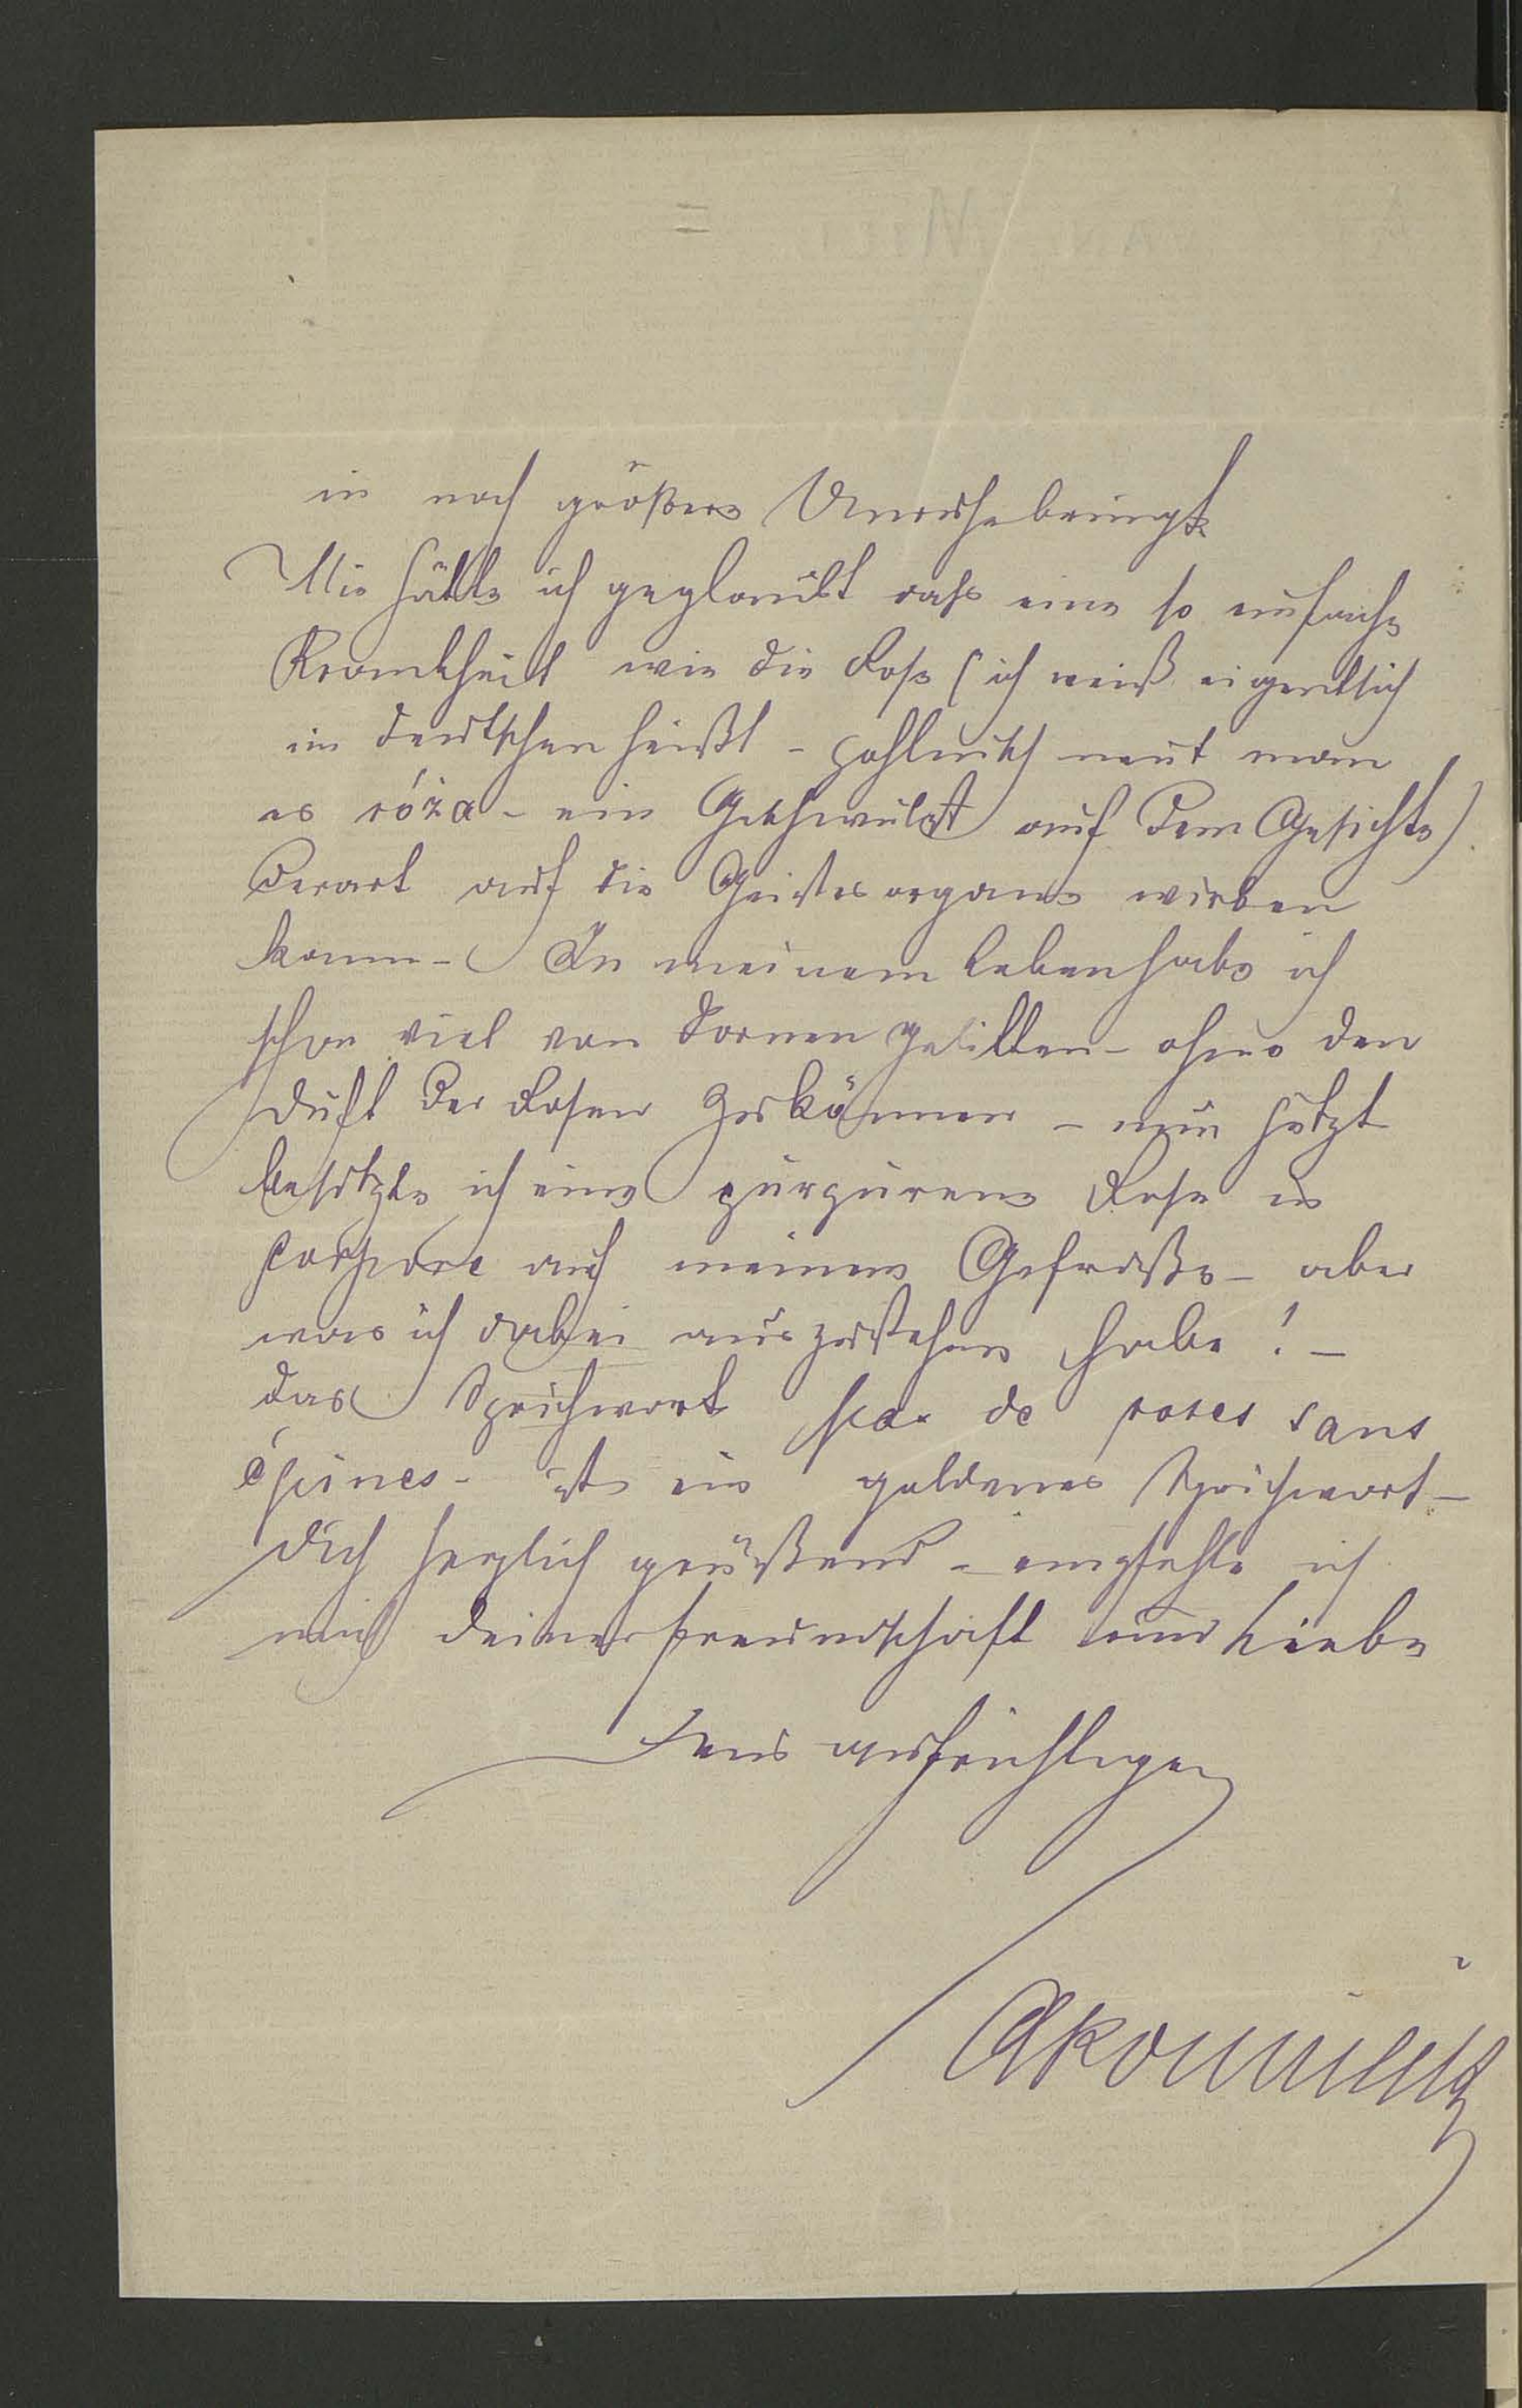 in noch größere Unruhe bringt
Nie hätte ich geglaubt daß eine so einfache
Krankheit wie die Rose (ich weiß eigentlich
im deutschen heißt - pohlnisch nent man
es róża - ein Geschwulst auf dem Gesichte)
derart auf die Geistesorgane wirken
kann - In meinem Leben habe ich
schon viel von Dornen gelitten - ohne den
Duft der Rosen zu kännen - nun jetzt
besitze ich eine purpurene Rose in
corpore auf meinem Gefraße - aber
was ich dabei auszustehen habe! -
das Sprichwort pas de roses sans
épines - ist ein goldenes Sprichwort -
Dich herzlich grüßend - empfehle ich
mich deiner Freundschaft und Liebe
Dein aufrichtiger